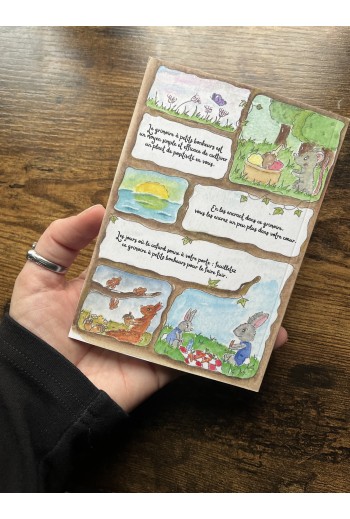 Le grimoire à petits bonheurs est
un moyen simple et efficace de cultiver
un phare de positivité en vous.
En les ancrant dans ce grimoire,
vous les ancrez un peu plus dans votre cœur.
Les jours où le cafard sonne à votre porte : feuilletez
ce grimoire à petits bonheurs pour le faire fuir.